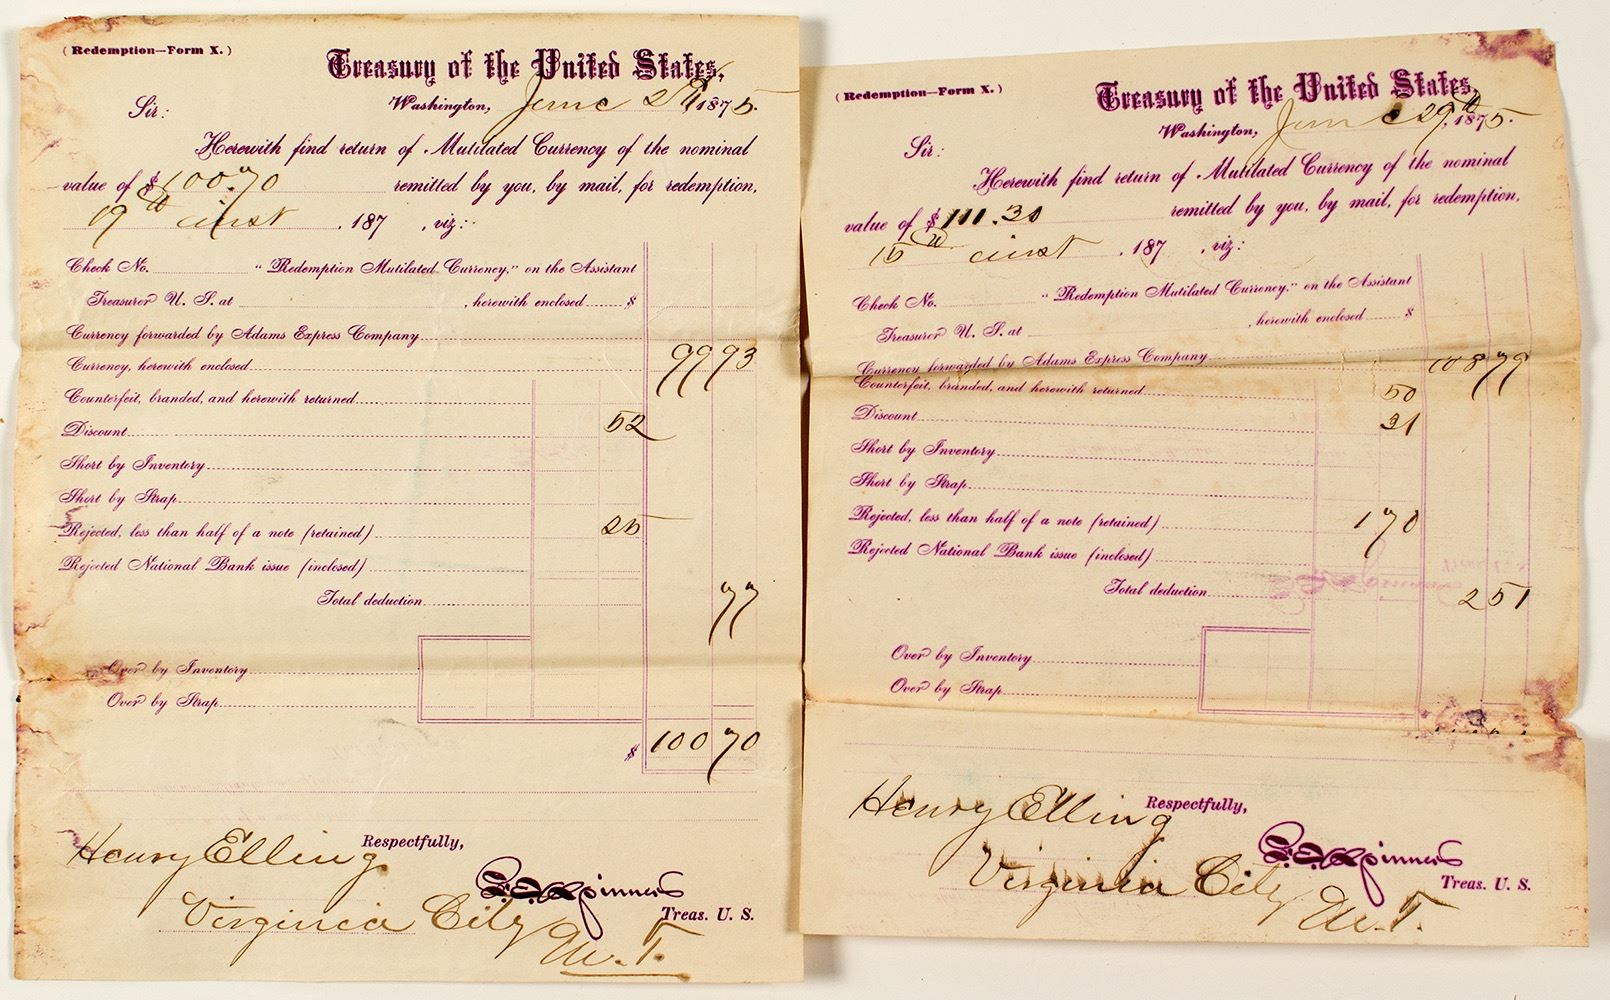 (Redemption—Form X.)
Treasury of the United States,
Washington, June 1875.
Sir:
Herewith find return of Mutilated Currency of the nominal
value of $100.70 remitted by you, by mail, for redemption,
19th inst , 187 , viz:
Check No. "Redemption Mutilated Currency," on the Assistant
Treasurer U. S. at , herewith enclosed $
Currency forwarded by Adams Express Company
Currency, herewith enclosed 99 93
Counterfeit, branded, and herewith returned
Discount 52
Short by Inventory
Short by Strap
Rejected, less than half of a note (retained) 25
Rejected National Bank issue (inclosed)
Total deduction 77
Over by Inventory
Over by Strap
$ 100 70
Respectfully,
Henry Elling
Virginia City
M.T.
F. E. Spinner
Treas. U. S.
(Redemption—Form X.)
Treasury of the United States,
Washington, June 29th, 1875.
Sir:
Herewith find return of Mutilated Currency of the nominal
value of $111.30 remitted by you, by mail, for redemption,
15th inst , 187 , viz:
Check No. "Redemption Mutilated Currency," on the Assistant
Treasurer U. S. at , herewith enclosed $
Currency forwarded by Adams Express Company 108 79
Counterfeit, branded, and herewith returned 50
Discount 31
Short by Inventory
Short by Strap
Rejected, less than half of a note (retained) 1 70
Rejected National Bank issue (inclosed)
Total deduction 2 51
Over by Inventory
Over by Strap
Respectfully,
Henry Elling
Virginia City
M.T.
F. E. Spinner
Treas. U. S.